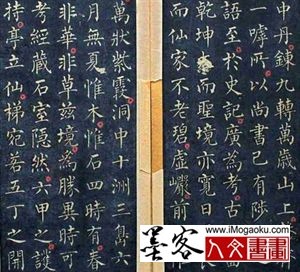 中丹錬九轉萬歲山上
一所以尚書已有陟
語至於史記廣為考古
乾坤而聖境亦寬日
而仙家不老碧虛巖前
萬狀紫霞洞中十洲三島六
月無夏惟木惟石四時有春
非華非草茲境為勝異時可
考經藏石室隱然六甲之護
持亭立仙梯宛若五丁之開
www.iMogaoku.com
墨客
人文書畫